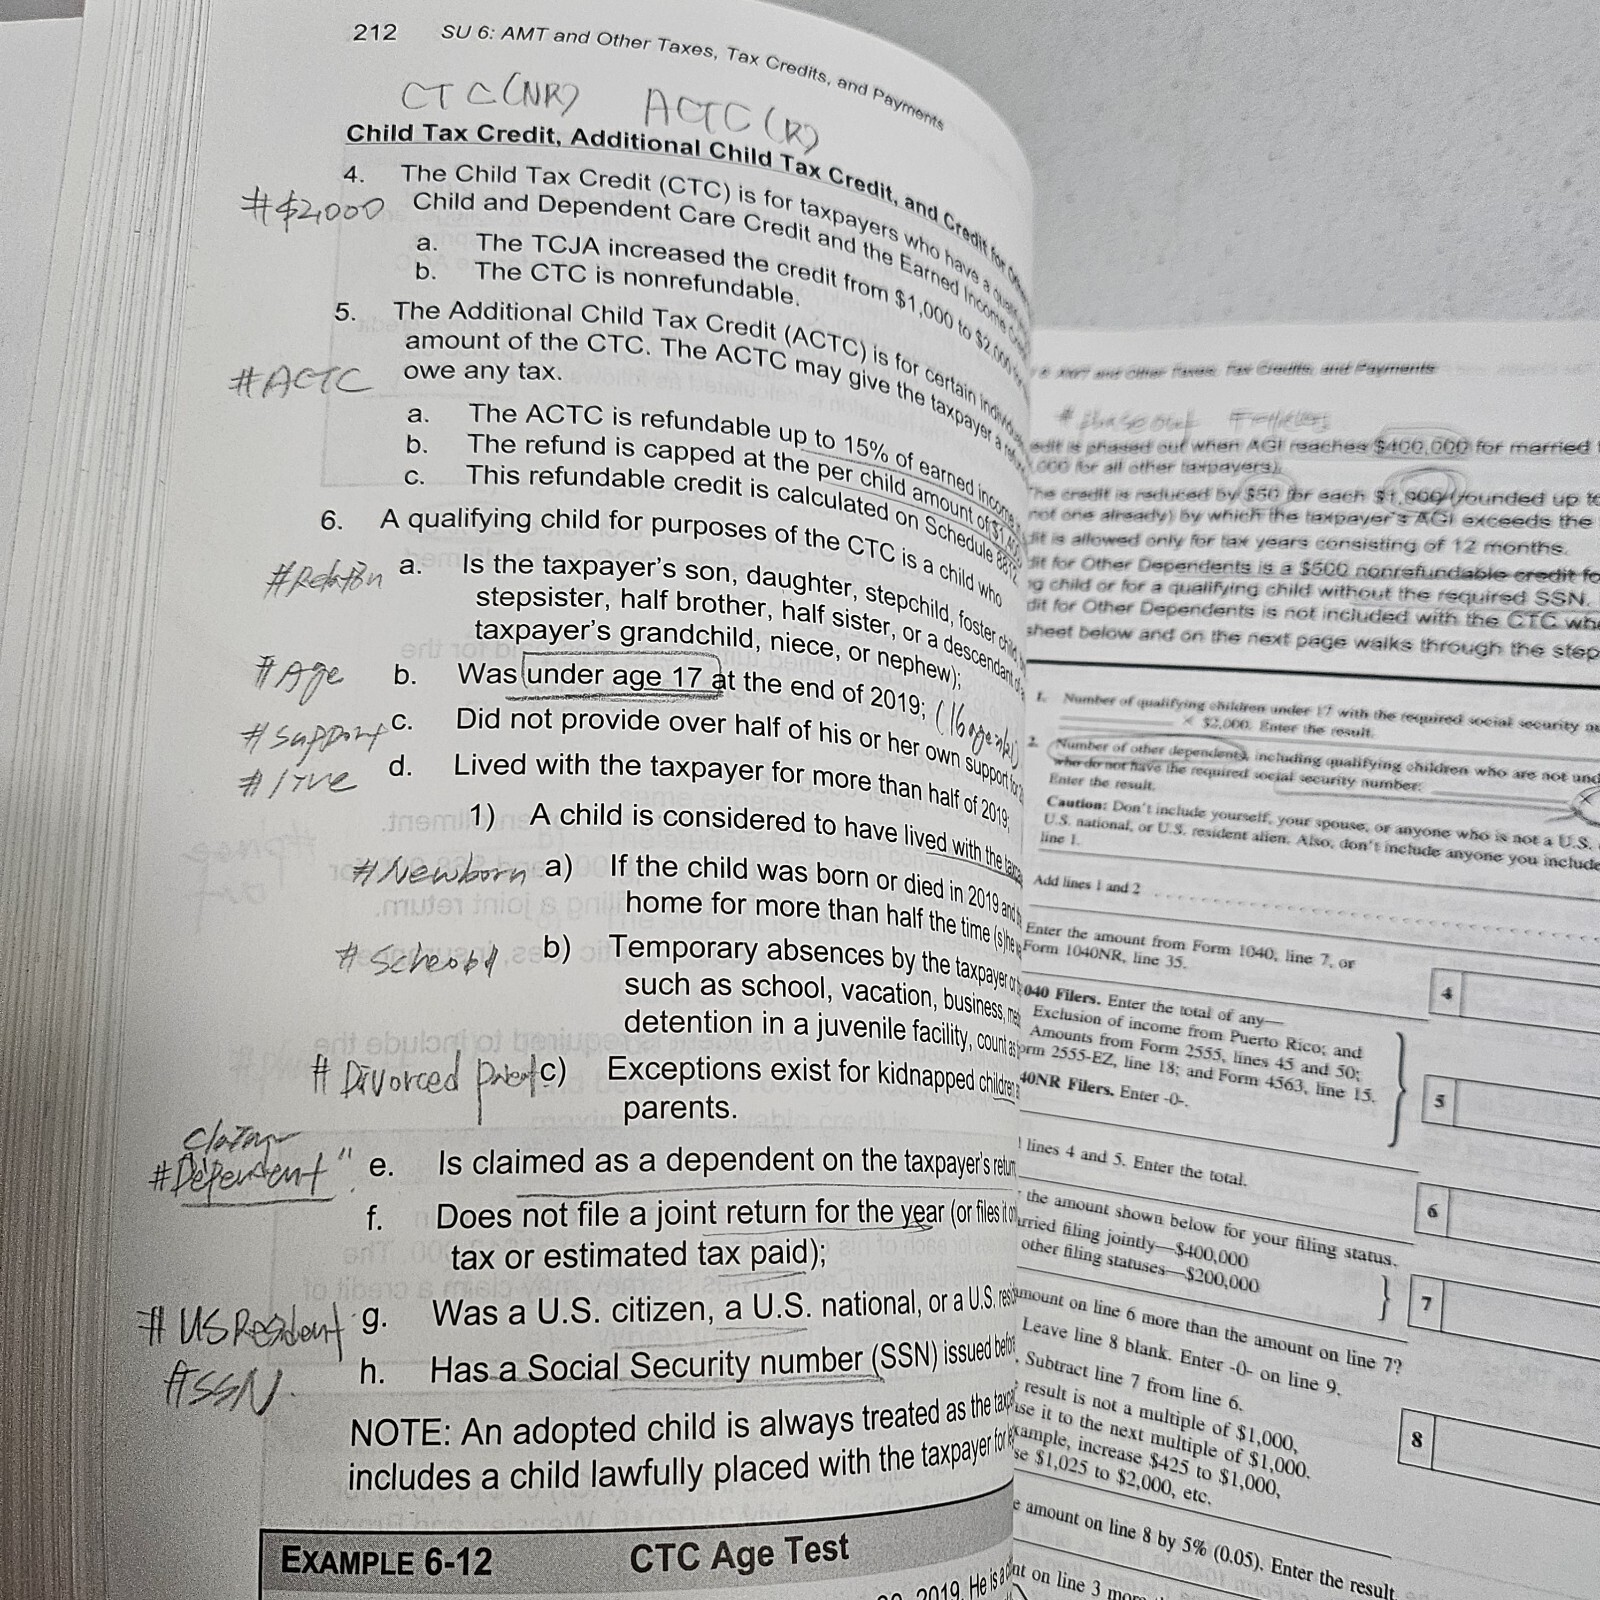 212 SU 6: AMT and Other Taxes, Tax Credits, and Payments
CTC (NR) ACTC (R)
Child Tax Credit, Additional Child Tax Credit, and Credit for
4. The Child Tax Credit (CTC) is for taxpayers who have a
#$2,000 Child and Dependent Care Credit and the Earned Income
a. The TCJA increased the credit from $1,000 to $2,000
b. The CTC is nonrefundable.
5. The Additional Child Tax Credit (ACTC) is for certain
amount of the CTC. The ACTC may give the taxpayer a
#ACTC owe any tax.
a. The ACTC is refundable up to 15% of earned income
b. The refund is capped at the per child amount of $1,400
c. This refundable credit is calculated on Schedule 8812
6. A qualifying child for purposes of the CTC is a child who
#Relation a. Is the taxpayer's son, daughter, stepchild, foster child
stepsister, half brother, half sister, or a descendant of
taxpayer's grandchild, niece, or nephew);
#Age b. Was under age 17 at the end of 2019;
#Support c. Did not provide over half of his or her own support for
#live d. Lived with the taxpayer for more than half of 2019;
1) A child is considered to have lived with the
#Newborn a) If the child was born or died in 2019 and
home for more than half the time (s)he
# b) Temporary absences by the taxpayer or
such as school, vacation, business,
detention in a juvenile facility, count as
# Divorced parent c) Exceptions exist for kidnapped children
parents.
#Dependent e. Is claimed as a dependent on the taxpayer's return
f. Does not file a joint return for the year (or files it
tax or estimated tax paid);
# US Resident g. Was a U.S. citizen, a U.S. national, or a U.S.
#SSN. h. Has a Social Security number (SSN) issued before
NOTE: An adopted child is always treated as the
includes a child lawfully placed with the taxpayer for
EXAMPLE 6-12 CTC Age Test
2019. He is a
AMT and Other Taxes, Tax Credits, and Payments
# phaseout
is phased out when AGI reaches $400,000 for married
for all other taxpayers).
The credit is reduced by $50 for each $1,000 (rounded up to
not one already) by which the taxpayer's AGI exceeds the
is allowed only for tax years consisting of 12 months.
for Other Dependents is a $500 nonrefundable credit
child or for a qualifying child without the required SSN.
for Other Dependents is not included with the CTC
sheet below and on the next page walks through the
1. Number of qualifying children under 17 with the required social security
× $2,000. Enter the result.
2. Number of other dependents, including qualifying children who are not
who do not have the required social security number:
Enter the result.
Caution: Don't include yourself, your spouse, or anyone who is not a U.S.
U.S. national, or U.S. resident alien. Also, don't include anyone you
line 1.
Add lines 1 and 2
Enter the amount from Form 1040, line 7, or
Form 1040NR, line 35.
4
Filers. Enter the total of any—
Exclusion of income from Puerto Rico; and
Amounts from Form 2555, lines 45 and 50;
2555-EZ, line 18; and Form 4563, line 15.
Filers. Enter -0-.
5
lines 4 and 5. Enter the total.
6
the amount shown below for your filing status.
filing jointly—$400,000
other filing statuses—$200,000
7
amount on line 6 more than the amount on line 7?
Leave line 8 blank. Enter -0- on line 9.
Subtract line 7 from line 6.
result is not a multiple of $1,000,
it to the next multiple of $1,000.
increase $425 to $1,000,
$1,025 to $2,000, etc.
8
amount on line 8 by 5% (0.05). Enter the result.
on line 3